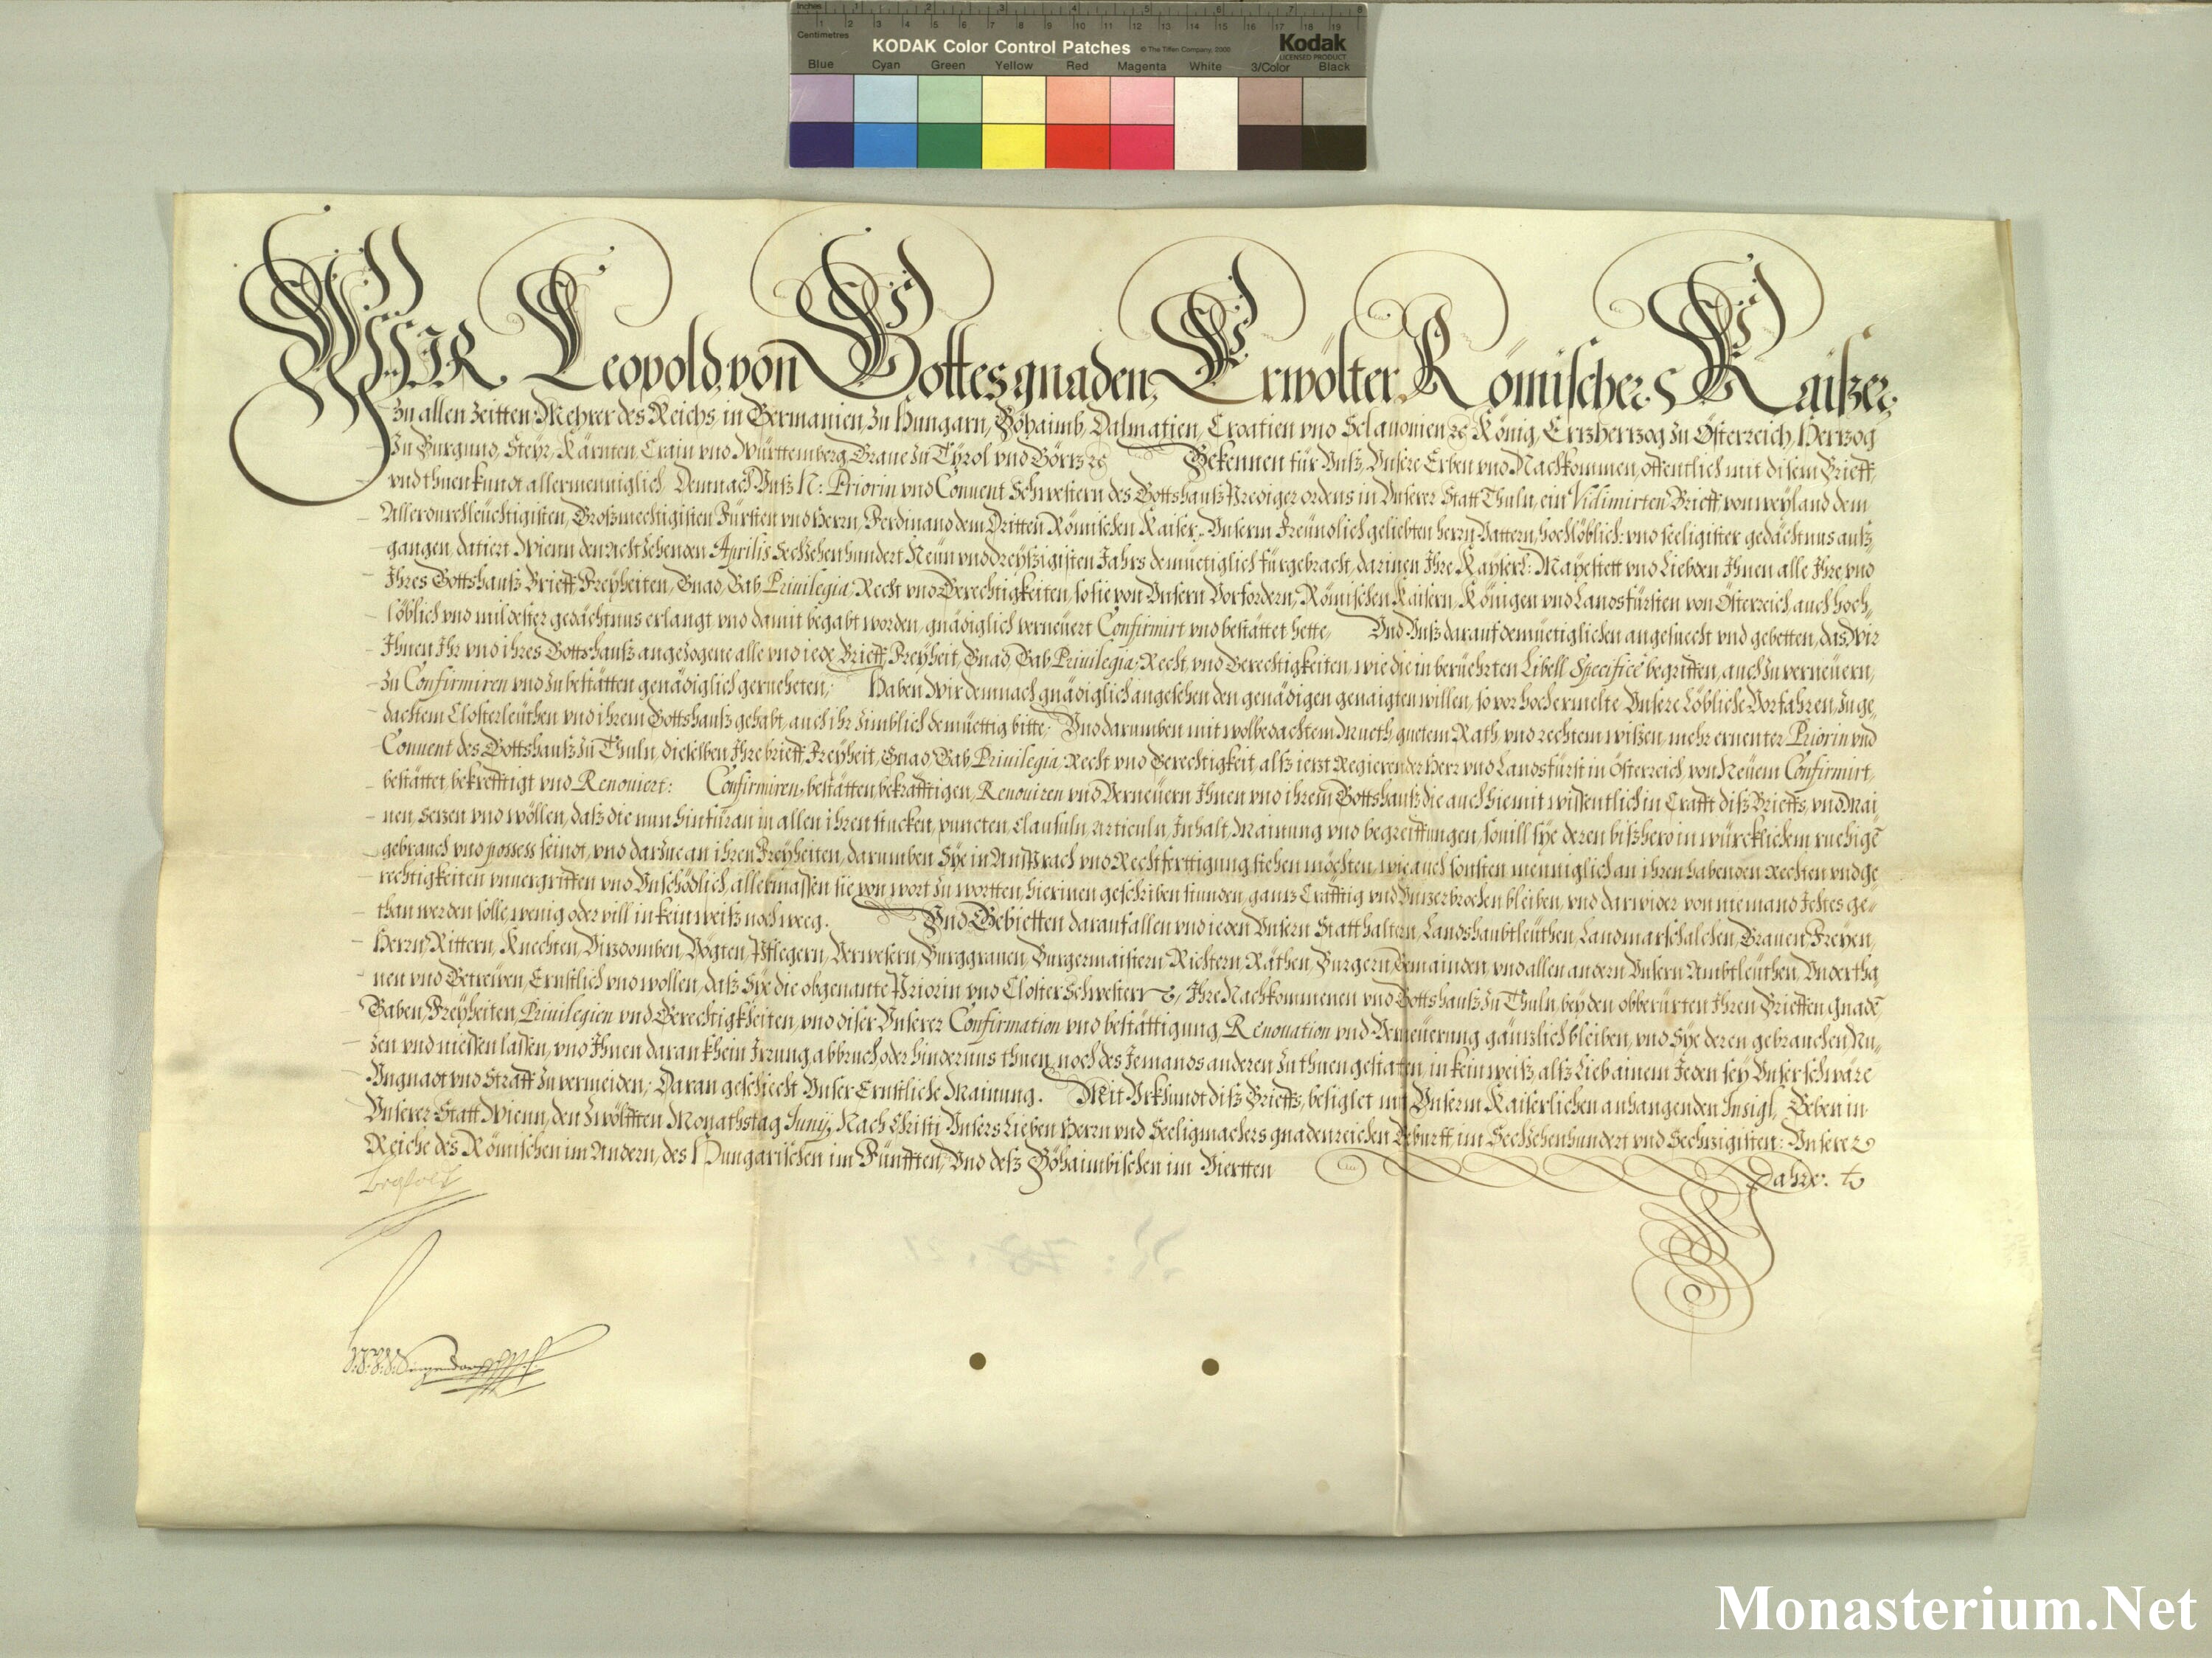 Inches 1 2 3 4 5 6 7 8
Centimetres 1 2 3 4 5 6 7 8 9 10 11 12 13 14 15 16 17 18 19
KODAK Color Control Patches © The Tiffen Company, 2000 Kodak
LICENSED PRODUCT
Blue Cyan Green Yellow Red Magenta White 3/Color Black
WIR Leopold von Gottes gnaden, Erwölter Römischer Kaiser,
zu allen Zeitten Mehrer des Reichs, in Germanien, zu Hungarn, Böhaimb, Dalmatien, Croatien vnd Sclauonien &c König, Ertzhertzog zu Österreich, Hertzog
zu Burgund, Steyr, Kärnten, Crain vnd Württemberg, Graue zu Tyrol vnd Görtz &c Bekennen für Vnß, Vnsere Erben vnd Nachkommen, offentlich mit disem Brieff,
vnd thuen kundt allermenniglich, Demnach Vnß N: Priorin vnd Conuent Schwestern des Gottshauß Prediger ordens in Vnserer Statt Thuln, ein Vidimirten Brieff, von weyland dem
Allerdurchleüchtigisten, Großmechtigisten Fürsten vnd Herrn, Ferdinand dem Dritten Römischen Kaiser, Vnserm Freündlich geliebten Herrn Vattern, hochlöblich: vnd seeligister gedächtnus auß,,
gangen, datiert Wienn den Achtzehenden Aprilis Sechzehenhundert Neün vnd dreyßigisten Jahrs demüetiglich fürgebracht, darinen Ihre Kayserl: Mayestett vnd Liebden Ihnen alle Ihre, vnd
Ihres Gottshauß Brieff, Freyheiten, Gnad, Gab, Priuilegia, Recht vnd Gerechtigkeiten, so sie von Vnsern Vorfordern, Römischen Kaisern, Königen vnd Landsfürsten von Österreich, auch hoch,,
löblich vnd mildester gedächtnus erlangt vnd damit begabt worden, gnädiglich verneüert Confirmirt vnd bestättet hette, Vnd Vnß darauf demüetiglichen angesuecht vnd gebetten, das Wir
Ihnen Ihr vnd ihres Gottshauß angezogene alle vnd iede Brieff, Freyheit, Gnad, Gab, Priuilegia, Recht, vnd Gerechtigkeiten, wie die in berüehrten Libell Specificè begriffen, auch zu verneüern,
zu Confirmiren vnd zubestätten genädiglich gerueheten; Haben Wir demnach gnädiglich angesehen den genädigen genaigten willen, so vor hochermelte Vnsere Löbliche Vorfahren, zu ge,,
dachtem Closterleüthen vnd ihrem Gottshauß gehabt, auch ihr zimblich demüettig bitte; Vnd darumben mit wolbedachtem Mueth, guetem Rath, vnd rechtem wißen, mehr ernenter Priorin vnd
Conuent des Gottshauß zu Thuln, dieselben Ihre brieff, Freyheit, Gnad, Gab, Priuilegia, Recht vnd Gerechtigkeit, alß ietzt Regierender Herr vnd Landsfürst in Österreich, von Neüem Confirmirt,
bestättet, bekrefftigt vnd Renouiert: Confirmiren, bestätten, bekräfftigen, Renouiren vnd Verneüern Ihnen vnd ihrem Gottshauß die auch hiemit wissentlich in Crafft diß Brieffs, vnd Mai
nen, setzen vnd wöllen, daß die nun hinfüran in allen ihren stucken, puncten, Clausuln, Articuln, Inhalt, Mainung vnd begreiffungen, souill sye deren bißhero in würcklichem ruehigē
gebrauch vnd possess seindt, vnd darzue an ihren Freyheiten, darumben Sye in Anspruch vnd Rechtferttigung stehen möchten, wie auch sonsten menniglich an ihren habenden Rechten vnd ge
rechtigkeiten vnuergriffen vnd Vnschödlich, allermassen sie von wort zu wortten, hierinen geschriben stunden, gantz Cräfftig vnd Vnzerbrochen bleiben, vnd darwider von niemand Ichtes ge,,
than werden solle, wenig oder vill in kein weiß noch weeg. Vnd Gebietten darauf allen vnd ieden Vnsern Statthaltern, Landshaubtleüthen, Landmarschalchen, Grauen, Freyen,
Herrn, Rittern, Knechten, Vizdomben, Vögten, Pflegern, Verwesern, Burggrauen, Burgermaistern, Richtern, Räthen, Burgern, Gemainden, vnd allen andern Vnsern Ambtleüthen, Vndertha
nen vnd Getreüen, Ernstlich vnd wollen, daß Sye die obgenante Priorin vnd Closter Schwestern, Ihre Nachkommenen vnd Gottshauß zu Thuln, bey den obberürten Ihren Brieffen, gnadē,
Gaben, Freyheiten, Priuilegien vnd Gerechtigkheiten, vnd diser Vnserer Confirmation vnd bestättigung, Renouation vnd Verneüerung gäntzlich bleiben, vnd Sye deren gebrauchen, Nu,,
zen vnd niessen lassen, vnd Ihnen daran khein Irrung, abbruch, oder hindernus thuen, noch des Iemands anderen zu thuen gestatten, in kein weiß, alß Lieb ainem Ieden sey Vnser schwäre
Vngnadt vnd Straff zu vermeiden; Daran geschiecht Vnser Ernstliche Mainung. Mit Vrkhundt diß Brieffs, besiglet mit Vnserm Kaiserlichen anhangenden Insigl, Geben in
Vnserer Statt Wienn, den Zwölfften Monathstag Juny, Nach Christi Vnsers Lieben Herrn vnd Seeligmachers gnadenreichen Geburtt, im Sechzehenhundert vnd Sechzigisten: Vnserer
Reiche des Römischen im Andern, des Hungarischen im Fünfften, Vnd deß Böhaimbischen im Viertten
Jahre.
Leopold
Monasterium.Net